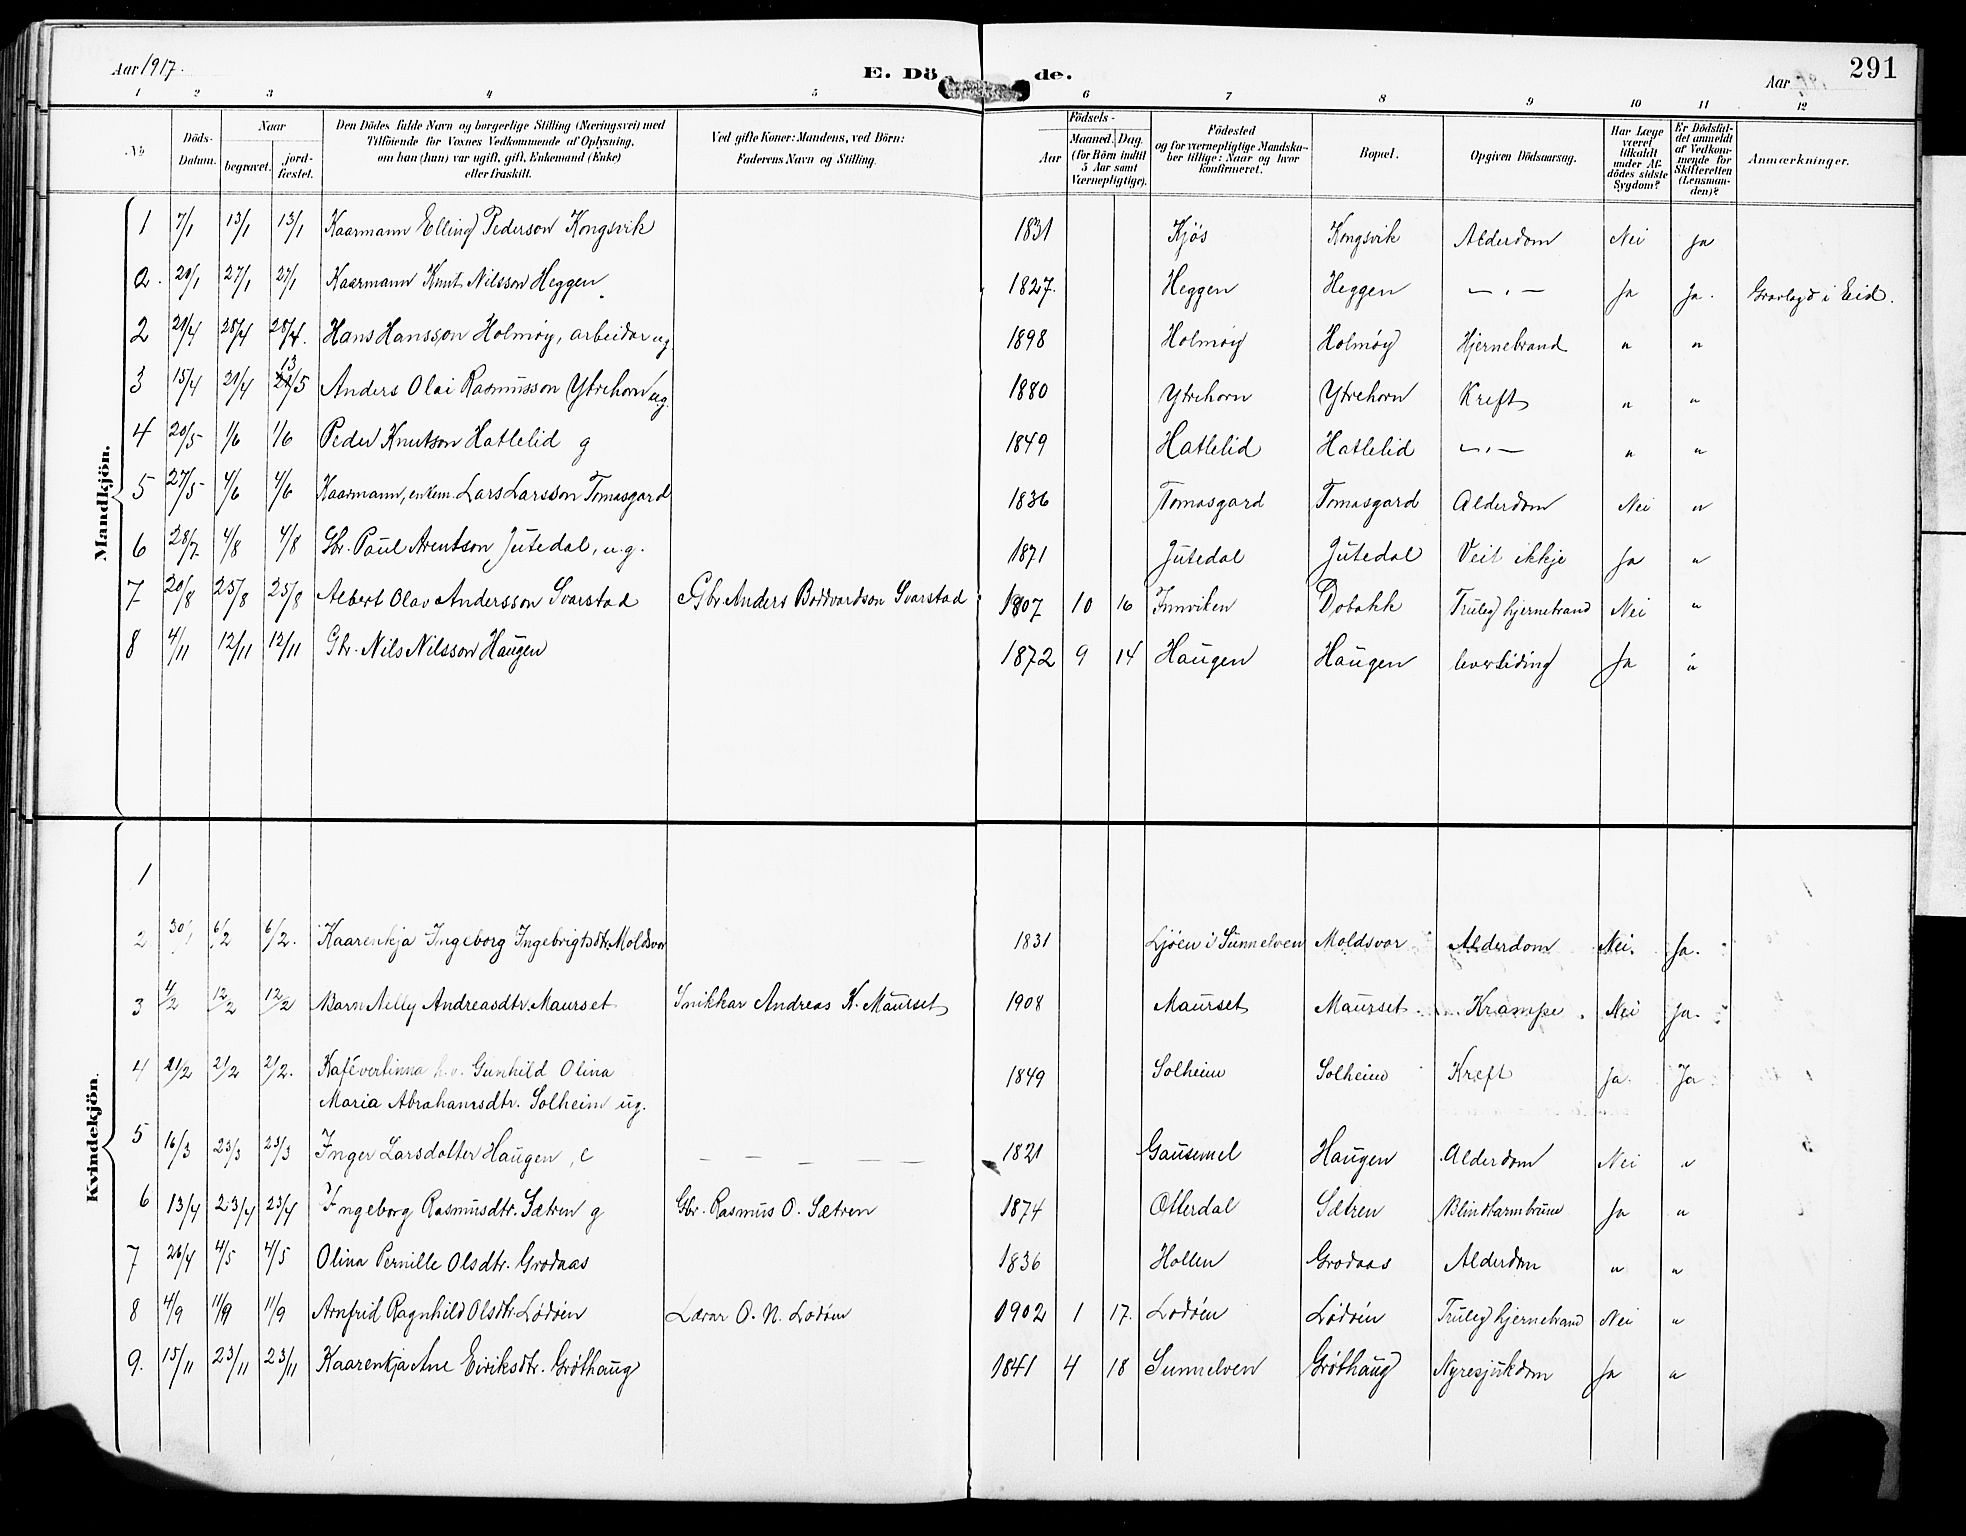 Aar 1917. E. Dö de. Aar 291
1 2 3 4 5 6 7 8 9 10 11 12
No Döds-Datum. Naar begravet. jordfæstet. Den Dödes fulde Navn og borgerlige Stilling (Næringsvei) med Tilföiende for Voxnes Vedkommende af Oplysning, om han (hun) var ugift, gift, Enkemand (Enke) eller fraskilt. Ved gifte Koner: Mandens, ved Börn: Faderens Navn og Stilling. Födsels- Aar Maaned. Dag. (for Börn indtil 5 Aar samt Værnepligtige). Födested og for værnepligtige Mandskaber tillige: Naar og hvor konfirmeret. Bopæl. Opgiven Dödsaarsag. Har Læge været tilkaldt under Afdödes sidste Sygdom? Er Dödsfaldet anmeldt af Vedkommende for Skifteretten (Lensmanden)? Anmærkninger.
Mandkjön.
1 7/1 13/1 13/1 Kaarmann Elling Pederson Kongsvik 1831 Kjøs Kongsvik Alderdom Nei Ja
2. 20/1 27/1 27/1 Kaarmann Knut Nilsson Heggen 1827. Heggen Heggen — " — Ja Ja. Gravlagd i Eid.
2 21/4 28/4 28/4. Hans Hansson Holmøy, arbeidar ug. 1898 Holmøy Holmøy Hjernebrand " "
3 15/4 21/4 13/5 Anders Olai Rasmusson Ytrehorn ug. 1880 Ytrehorn Ytrehorn Kreft " "
4 20/5 1/6 1/6 Peder Knutson Hatlelid g 1849 Hatlelid Hatlelid — " — " "
5 27/5 4/6 4/6 Kaarmann, enkem. Lars Larsson Tomasgard 1836 Tomasgard Tomasgard Alderdom Nei "
6 28/7 4/8 4/8 Gbr. Paul Arentson Jutedal, ug. 1871 Jutedal Jutedal Veit ikkje Ja "
7 20/8 25/8 25/8 Albert Olav Andersson Svarstad Gbr Anders Boddvardson Svarstad 1907 10 16 Innviken Dobakk Truleg hjernebrand Nei "
8 4/11 12/11 12/11 Gbr. Nils Nilsson Haugen 1872 9 14 Haugen Haugen Ja "
Kvindekjön.
1
2 30/1 6/2 6/2. Kaarenkja Ingeborg Ingebrigtsdtr. Moldsvor 1831 Ljøen i Sunnelven Moldsvor Alderdom Nei. Ja.
3 4/2 12/2 12/2 Barn Nelly Andreasdtr. Maurset Snikkar Andreas K. Maurset 1908 Maurset Maurset Krampe Nei Ja.
4 21/2 2/2 2/2. Kafévertinna Gunhild Olina
Maria Abrahamsdtr. Solheim ug. 1849 Solheim Solheim Kreft Ja. Ja
5 16/3 23/3 23/3 Inger Larsdotter Haugen, e — — — — — 1821 Gausemel Haugen Alderdom Nei "
6 13/4 23/4 23/4 Ingeborg Rasmusdtr. Sætren g Gbr. Rasmus O. Sætren 1874 Otterdal Sætren Blindtarmbrune Ja "
7 26/4 4/5 4/5 Olina Pernille Olsdtr. Grodaas 1836 Hollen Grodaas Alderdom " "
8 4/9 11/9 11/9 Arnfrid Ragnhild Olsdtr. Lødøen Lærar O. N. Lødøen 1902 1 17. Lødøen Lødøen Truleg hjernebrand Nei "
9. 15/11 23/11 23/11 Kaarenkja Ane Eiriksdtr. Grøthaug 1841 4 18 Sunnelven Grøthaug Nyresjukdom Ja "